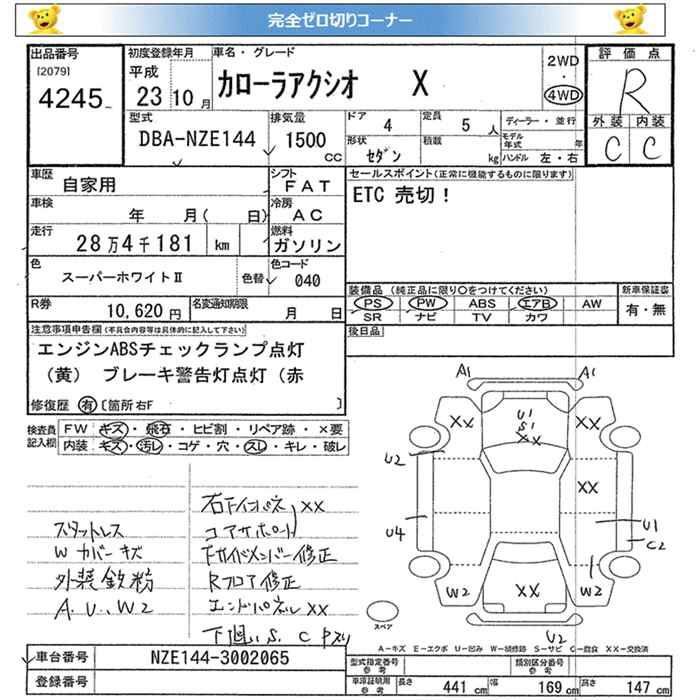 完全ゼロ切りコーナー
出品番号 [2079] 4245
初度登録年月 平成 23 10月
車名・グレード カローラアクシオ X
2WD ・ 4WD
評価点 R
外装 内装
C C
型式 DBA-NZE144
排気量 1500 CC
ドア 4
定員 5 人
ディーラー・並行
形状 セダン
積載 kg
モデル年式 年
ハンドル 左・右
車歴 自家用
シフト FAT
セールスポイント(正常に機能するものに限ります)
ETC 売切!
車検 年 月( 日)
冷房 AC
走行 28万4千181 km
燃料 ガソリン
色 スーパーホワイトⅡ
色替
色コード 040
装備品 (純正品に限り○をつけてください)
新車保証書
PS PW ABS エアB AW
有・無
SR ナビ TV カワ
R券 10,620円
名変通知期限 月 日
後日品
注意事項申告欄(不具合内容等は具体的に記入して下さい)
エンジンABSチェックランプ点灯
(黄) ブレーキ警告灯点灯(赤
修復歴 有 [箇所 右F ]
検査員記入欄
FW キズ・飛石・ヒビ割・リペア跡・×要
内装 キズ・汚レ・コゲ・穴・スレ・キレ・破レ
A1 A1
XX U1 S1 XX XX
U2
XX
U4 U1
C2
W2 XX W2
スペア U2
右FインパネXX
スタットレス コアサポート
Wカバーキズ Fサイドメンバー修正
外装鉄粉 Rフロア修正
A.U.W2 エンドパネルXX
下廻り S. C
A−キズ E−エクボ U−凹み W−補修跡 S−サビ C−腐食 XX−交換済
車台番号 NZE144-3002065
登録番号
型式指定番号 参考
類別区分番号 参考
車庫証明用 参考 長さ 441 cm 幅 169 cm 高さ 147 cm